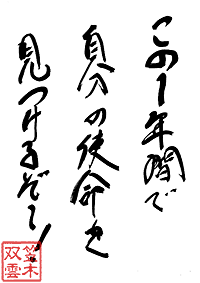 この1年間で
自分の使命を
見つけるぞー!
笠木
双雲